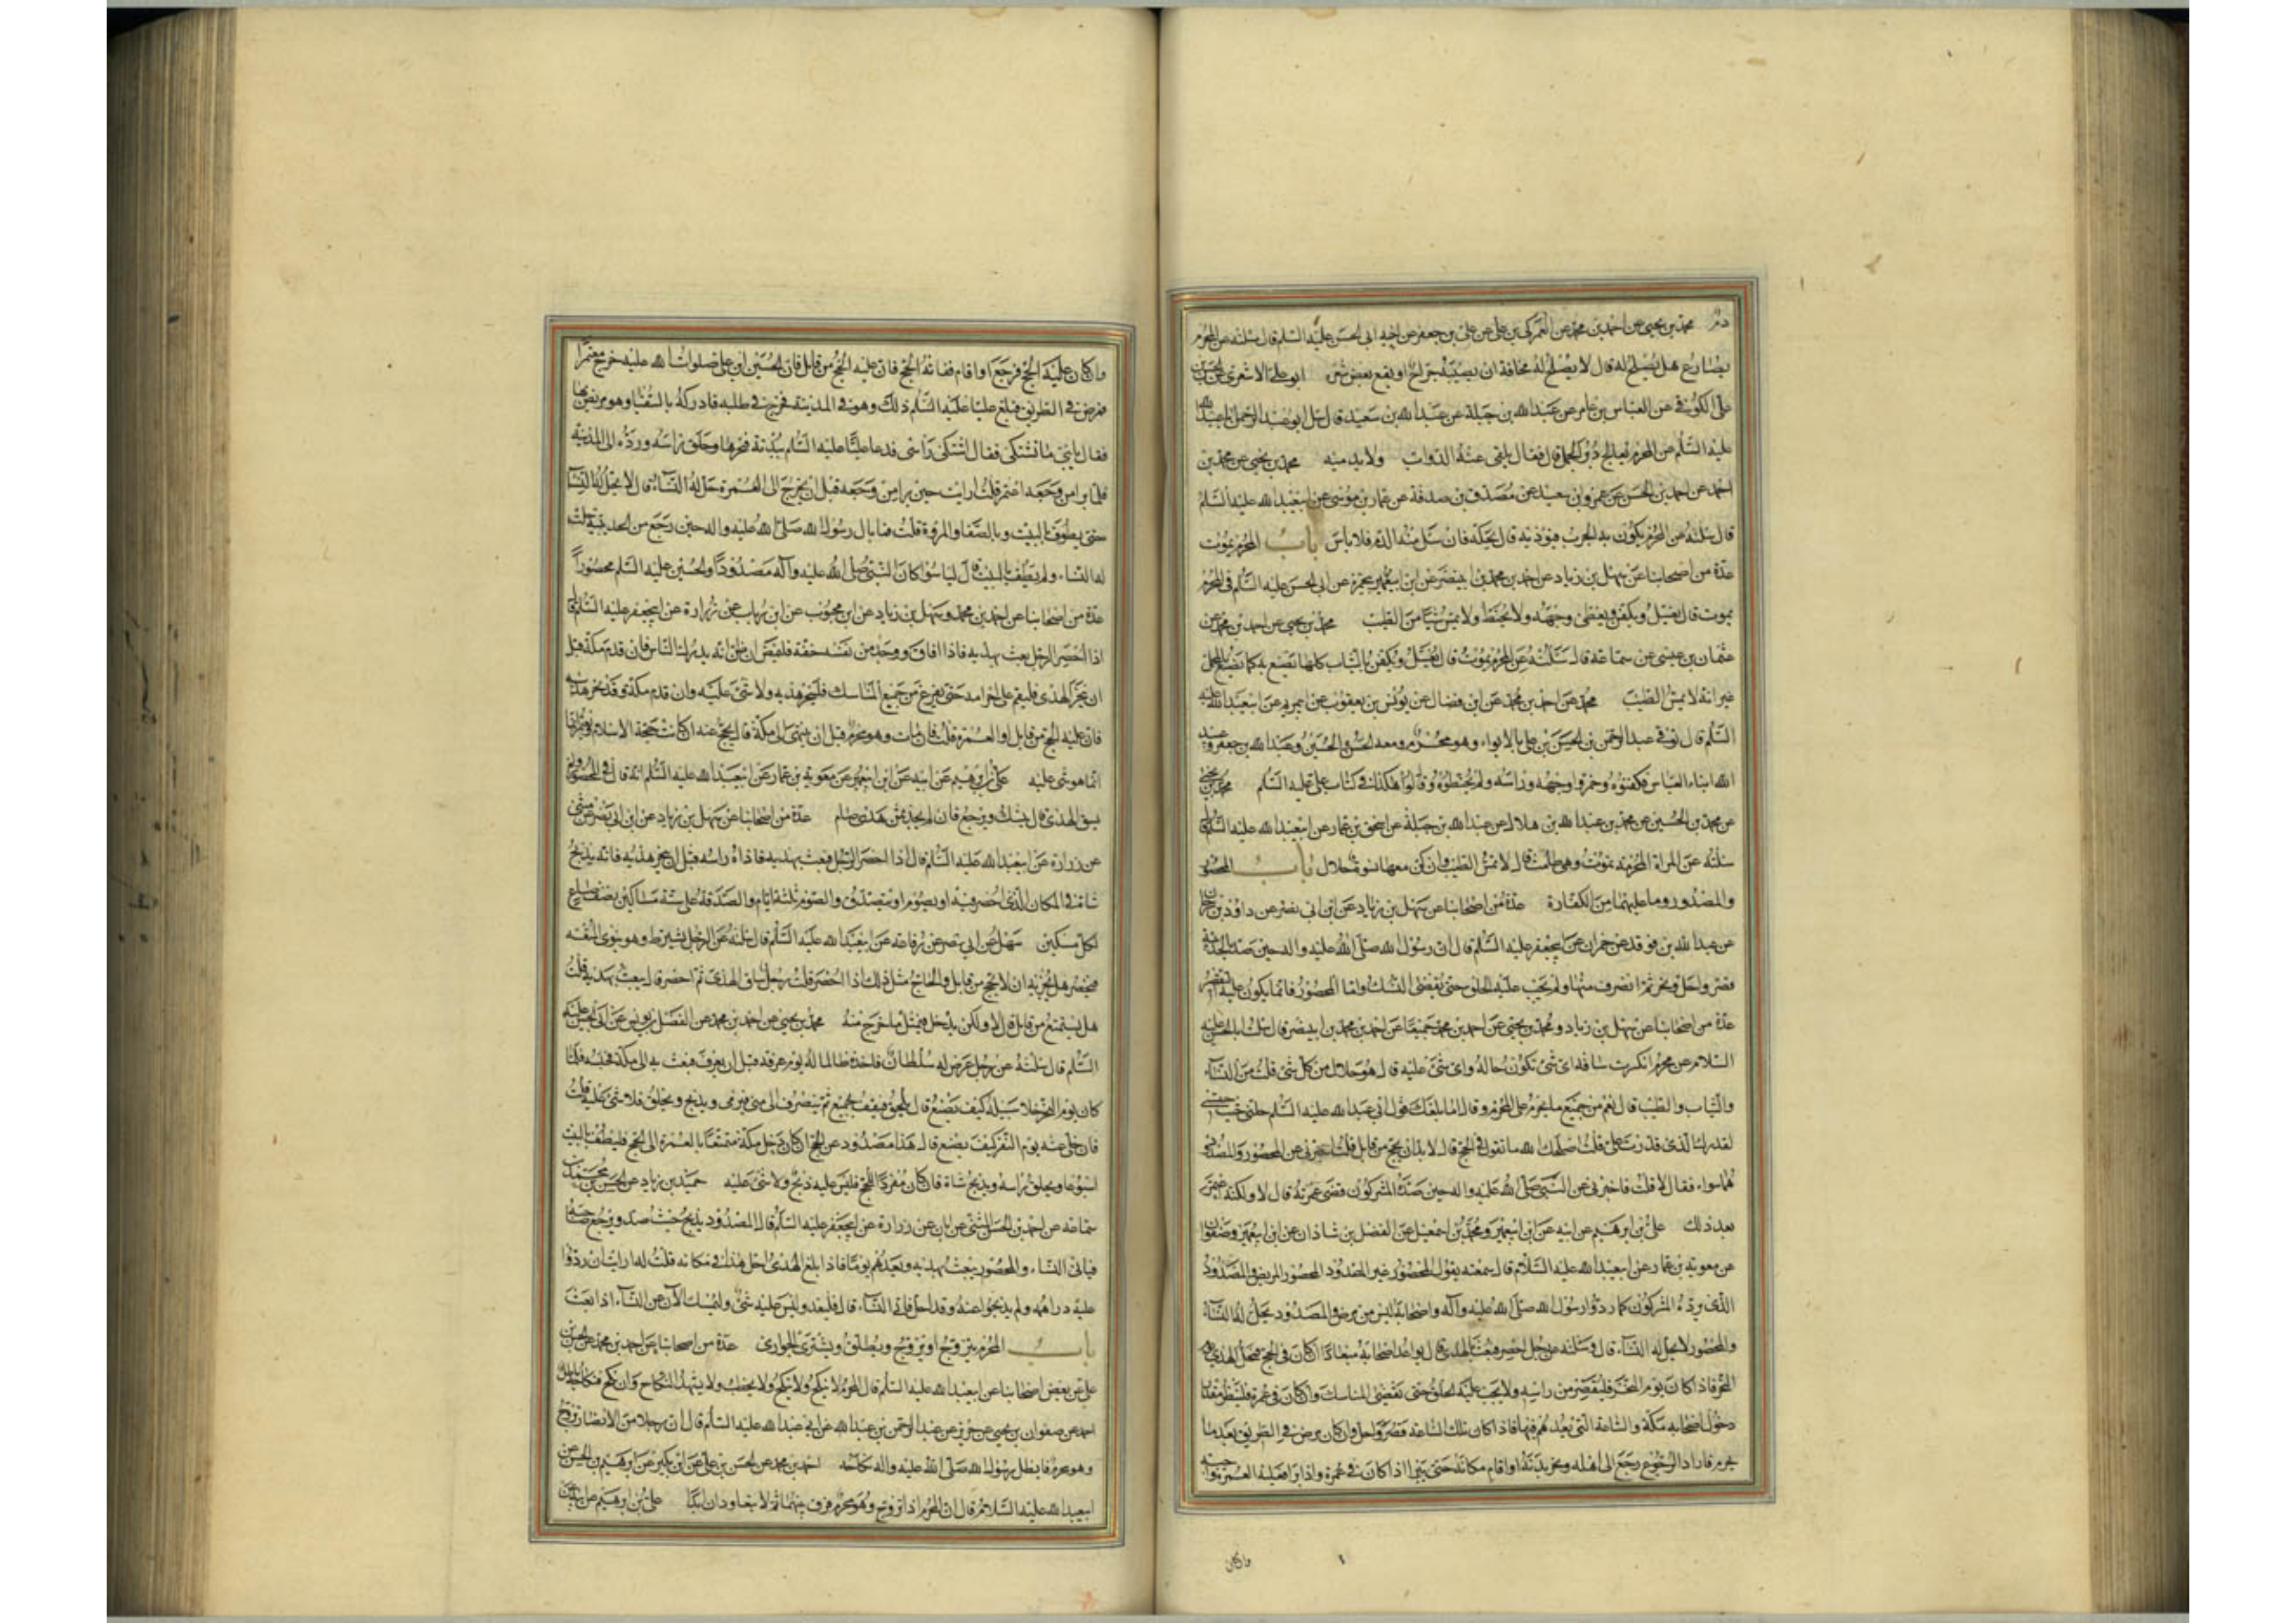 دم محمد بن يحيى عن احمد بن محمد عن العمركى بن على عن على بن جعفر عن اخيه ابى الحسن عليه السلم قال سئلته عن المحرم
يصارع هل يصلح له قال لا يصلح له مخافة ان يصيبه جراح او يقع بعض شعره ابو على الاشعرى عن الحسن بن
على الكوفى عن العباس بن عامر عن عبد الله بن جبلة عن عبد الله بن سعيد قال سئل ابو عبد الرحمن ابا عبد الله
عليه السلم عن المحرم يعالج دبر الجمل قال فقال يلقى عنه الدواب ولا يدميه محمد بن يحيى عن محمد بن
احمد عن احمد بن الحسن عن عمرو بن سعيد عن مصدق بن صدقة عن عمار بن موسى عن ابيعبد الله عليه السلم
قال سئلته عن المحرم يكون به الجرب فيؤذيه قال يحكه فان سال منه الدم فلا باس باب المحرم يموت
عدة من اصحابنا عن سهل بن زياد عن احمد بن محمد بن ابينصر عن ابن ابيحمزة عن ابى الحسن عليه السلم فى المحرم
يموت قال يغسل ويكفن ويغطى وجهه ولا يحنط ولا يمس شيئا من الطيب محمد بن يحيى عن احمد بن محمد عن
عثمان بن عيسى عن سماعة قال سئلته عن المحرم يموت قال يغسل ويكفن بالثياب كلها يصنع به كما يصنع بالمحل
غير انه لا يمس الطيب محمد عن احمد بن محمد عن ابن فضال عن يونس بن يعقوب عن ابيمريم عن ابيعبد الله عليه
السلم قال توفى عبد الرحمن بن الحسن بن على بالابواء وهو محرم ومعه الحسن والحسين وعبد الله بن جعفر وعبد
الله ابناء العباس فكفنوه وخمروا وجهه وراسه ولم يحنطوه وقالوا هكذا فى كتاب على عليه السلم محمد بن يحيى
عن محمد بن الحسين عن محمد بن عبد الله بن هلال عن عبد الله بن جبلة عن اسحق بن عمار عن ابيعبد الله عليه السلم قال
سئلته عن المراة المحرمة تموت وهى طامث قال لا تمس الطيب وان كن معها نسوة حلال باب المحصور
والمصدود وما عليهما من الكفارة عدة من اصحابنا عن سهل بن زياد عن ابن ابى نصر عن داود بن سرحان
عن عبد الله بن فرقد عن حمران عن ابيجعفر عليه السلم قال ان رسول الله صلى الله عليه واله حين صد بالحديبية
قصر واحل ونحر ثم انصرف منها ولم يجب عليه الحلق حتى يقضى النسك واما المحصور فانما يكون عليه التقصير
عدة من اصحابنا عن سهل بن زياد ومحمد بن يحيى عن احمد بن محمد جميعا عن احمد بن محمد بن ابينصر قال سئلت ابا الحسن عليه
السلام عن محرم انكسرت ساقه اى شئ تكون حاله واى شئ عليه قال هو حلال من كل شئ قلت من النساء
والثياب والطيب قال نعم من جميع ما يحرم على المحرم وقال اما بلغك قول ابى عبد الله عليه السلم حلنى حيث حبستنى
لقدرك الذى قدرت على قلت اصلحك الله ما تقول فى الحج قال لا بد ان يحج من قابل قلت اخبرنى عن المحصور والمصدود
هما سواء فقال لا قلت فاخبرنى عن النبى صلى الله عليه واله حين صده المشركون قضى عمرته قال لا ولكنه اعتمر
بعد ذلك على بن ابرهيم عن ابيه عن ابن ابيعمير ومحمد بن اسمعيل عن الفضل بن شاذان عن ابن ابيعمير وصفوان
عن معوية بن عمار عن ابيعبد الله عليه السلام قال سمعته يقول المحصور غير المصدود المحصور المريض والمصدود
الذى يرده المشركون كما ردوا رسول الله صلى الله عليه وآله واصحابه ليس من مرض والمصدود يحل له النساء
والمحصور لا يحل له النساء قال وسئلته عن رجل احصر فبعث بالهدى قال يواعد اصحابه ميعادا ان كان فى الحج فمحل الهدى يوم
النحر فاذا كان يوم النحر فليقصر من راسه ولا يجب عليه الحلق حتى تقضى المناسك وان كان فى عمرة فلينظر مقدار
دخول اصحابه مكة والساعة التى يعدهم فيها فاذا كان تلك الساعة قصر واحل وان كان مرض فى الطريق بعد ما
يحرم فاراد الرجوع رجع الى اهله ونحر بدنة او اقام مكانه حتى يبرا اذا كان فى عمرة واذا برا فعليه العمرة واجبة
وان كان
وان كان عليه الحج فرجع او اقام ففاته الحج فان عليه الحج من قابل فان الحسين بن على صلوات الله عليه خرج معتمرا
فمرض فى الطريق فبلغ عليا عليه السلم ذلك وهو فى المدينة فخرج فى طلبه فادركه بالسقيا وهو مريض بها
فقال يا بنى ما تشتكى فقال اشتكى راسى فدعا على عليه السلم ببدنة فنحرها وحلق راسه ورده الى المدينة
فلما برا من وجعه اعتمر قلت ارايت حين برا من وجعه قبل ان يخرج الى العمرة حل له النساء قال لا تحل له النساء
حتى يطوف بالبيت وبالصفا والمروة قلت فما بال رسول الله صلى الله عليه واله حين رجع من الحديبية حلت
له النساء ولم يطف بالبيت قال ليسا سواء كان النبى صلى الله عليه وآله مصدودا والحسين عليه السلم محصورا
عدة من اصحابنا عن احمد بن محمد وسهل بن زياد عن ابن محبوب عن ابن رياب عن زرارة عن ابيجعفر عليه السلم قال
اذا احصر الرجل بعث بهديه فاذا افاق ووجد من نفسه خفة فليمض ان ظن انه يدرك الناس فان قدم مكة قبل
ان ينحر الهدى فليقم على احرامه حتى يفرغ من جميع المناسك فلينحر هديه ولا شئ عليه وان قدم مكة وقد نحر هديه
فان عليه الحج من قابل او العمرة قلت فان مات وهو محرم قبل ان ينتهى الى مكة قال يحج عنه ان كانت حجة الاسلام ويعتمر
انما هو شئ عليه على بن ابرهيم عن ابيه عن ابن ابيعمير عن معوية بن عمار عن ابيعبد الله عليه السلم انه قال فى المحصور ولم
يسق الهدى قال ينسك ويرجع فان لم يجد ثمن هدى صام عدة من اصحابنا عن سهل بن زياد عن ابن ابى نصر عن مثنى
عن زرارة عن ابيعبد الله عليه السلم قال اذا احصر الرجل فبعث بهديه فاذاه راسه قبل ان ينحر هديه فانه يذبح
شاة فى المكان الذى احصر فيه او يصوم او يتصدق والصوم ثلثة ايام والصدقة على ستة مساكين نصف صاع
لكل مسكين سهل عن ابن ابى نصر عن رفاعة عن ابيعبد الله عليه السلم قال سئلته عن الرجل يشترط وهو ينوى المتعة
فيحصر هل يجزيه ان لا يحج من قابل قال يحج من قابل والحاج مثل ذلك اذا احصر قلت رجل ساق الهدى ثم احصر قال يبعث بهديه قلت
هل يستمتع من قابل قال لا ولكن يدخل فى مثل ما خرج منه محمد بن يحيى عن احمد بن محمد عن الفضل بن يونس عن ابى الحسن عليه
السلم قال سئلته عن رجل عرض له سلطان فاخذه ظالما له يوم عرفة قبل ان يعرف فبعث به الى مكة فحبسه فلما
كان يوم النحر خلا سبيله كيف يصنع قال يلحق فيقف بجمع ثم ينصرف الى منى فيرمى ويذبح ويحلق ولا شئ عليه قلت
فان خلى عنه يوم النفر كيف يصنع قال هذا مصدود عن الحج ان كان دخل مكة متمتعا بالعمرة الى الحج فليطف بالبيت
اسبوعا ويحلق راسه ويذبح شاة فان كان مفردا للحج فليس عليه ذبح ولا شئ عليه حميد بن زياد عن الحسن بن محمد بن
سماعة عن احمد بن الحسن الميثمى عن ابان عن زرارة عن ابيجعفر عليه السلم قال المصدود يذبح حيث صد ويرجع صاحبه
فياتى النساء والمحصور يبعث بهديه ويعدهم يوما فاذا بلغ الهدى احل هذا فى مكانه قلت له ارايت ان ردوا
عليه دراهمه ولم يذبحوا عنه وقد احل فاتى النساء قال فليعد وليس عليه شئ وليمسك الآن عن النساء اذا بعث
باب المحرم يتزوج او يزوج ويطلق ويشترى الجوارى عدة من اصحابنا عن احمد بن محمد عن الحسن بن
على عن بعض اصحابنا عن ابيعبد الله عليه السلم قال المحرم لا ينكح ولا ينكح ولا يخطب ولا يشهد النكاح وان نكح فنكاحه باطل
احمد عن صفوان بن يحيى عن حريز عن عبد الرحمن بن عبد الله عن ابى عبد الله عليه السلم قال ان رجلا من الانصار تزوج
وهو محرم فابطل رسول الله صلى الله عليه واله نكاحه احمد بن محمد عن الحسن بن على عن ابن بكير عن ابرهيم بن الحسن عن
ابيعبد الله عليه السلام قال ان المحرم اذا تزوج وهو محرم فرق بينهما ثم لا يتعاودان ابدا على بن ابرهيم عن ابيه عن